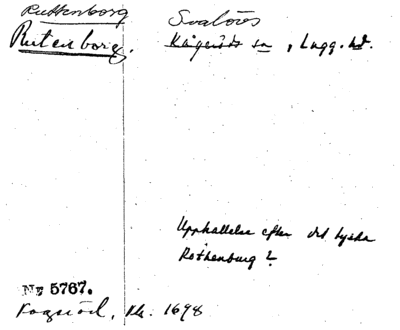 Ruttenborg Svalövs
Rutenborg. Kågeröds sn, Lugg. hd.
Uppkallelse efter det tyska
Rothenburg?
Nr 5767.
Kl. 1698